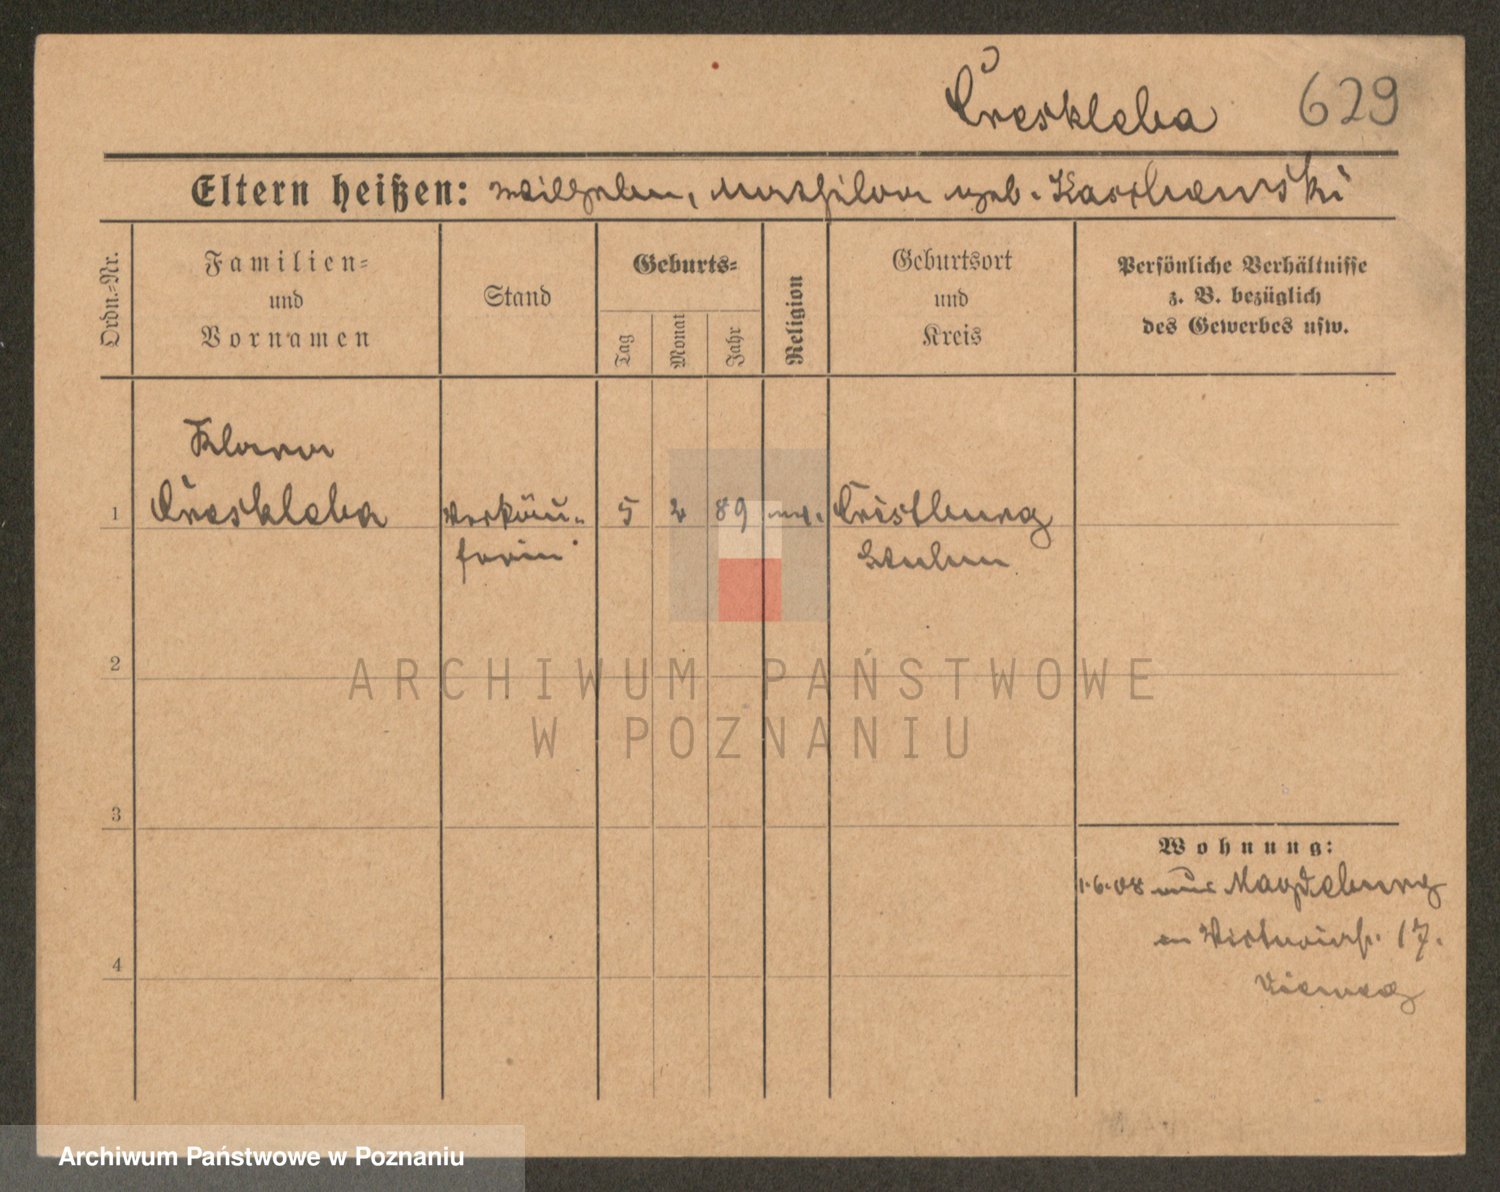 Creskleba 629
Eltern heißen: Wilhelm, Mathilda geb. Kaschewski
Ordn.-Nr.
Familien-
und
Vornamen
Stand
Geburts-
Tag
Monat
Jahr
Religion
Geburtsort
und
Kreis
Persönliche Verhältnisse
z. B. bezüglich
des Gewerbes usw.
Klara
1 Creskleba Verkäu- 5 2 89 Cristburg
ferin Stuhm
2
ARCHIWUM PAŃSTWOWE
W POZNANIU
3
Wohnung:
1.6.08 aus Magdeburg
17.
4
Archiwum Państwowe w Poznaniu